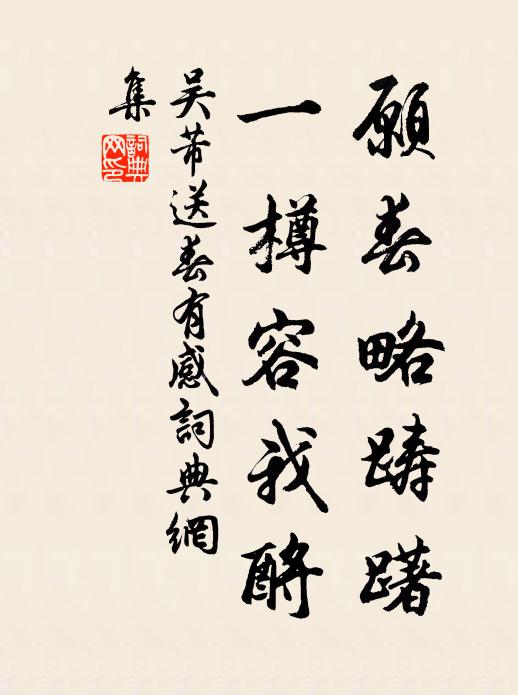 願春略踌躇
一樽容我酹
吴芾送春有感詞典網
集
詞典网印